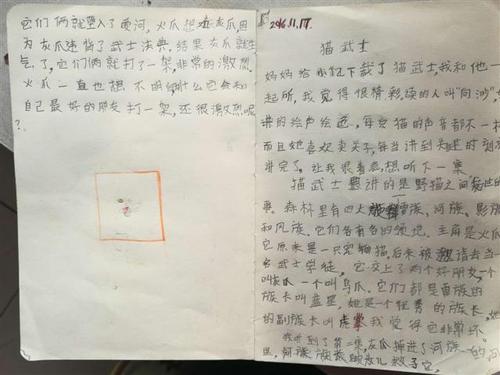 它们俩就坠入了河,火爪想灰爪,因
为灰爪违背了武士法典,结果灰爪就生
气了,它们俩就打了一架,非常的激烈。
火爪一直也想不明什么它会和
自己最好的朋友打一架,还很激烈呢
?
2016.11.17.
猫武士
妈妈给小忆下载了猫武士,我和他一
起听,我觉得很精彩,读的人叫“向沙”
讲的绘声绘色,每只猫的声音都不一
而且她喜欢卖关子,每当讲到关键时刻
讲完了。让我很着急,想听下一集
猫武士是讲的是野猫之间
事,森林里有四大族,雷族、河族、影族
和风族。它们各有各的领地。主角是火爪
它原来是一只宠物猫,后来被邀请去当一
名武士学徒。它交上了两个好朋友,一个
叫灰爪,一个叫乌爪。它们都是雷族的
族长叫蓝星,她是一个优秀的族长,她
的副族长叫虎掌,我觉得它非常坏
我听到了第二集,灰爪掉进了河族的河
里,河族族救了它,